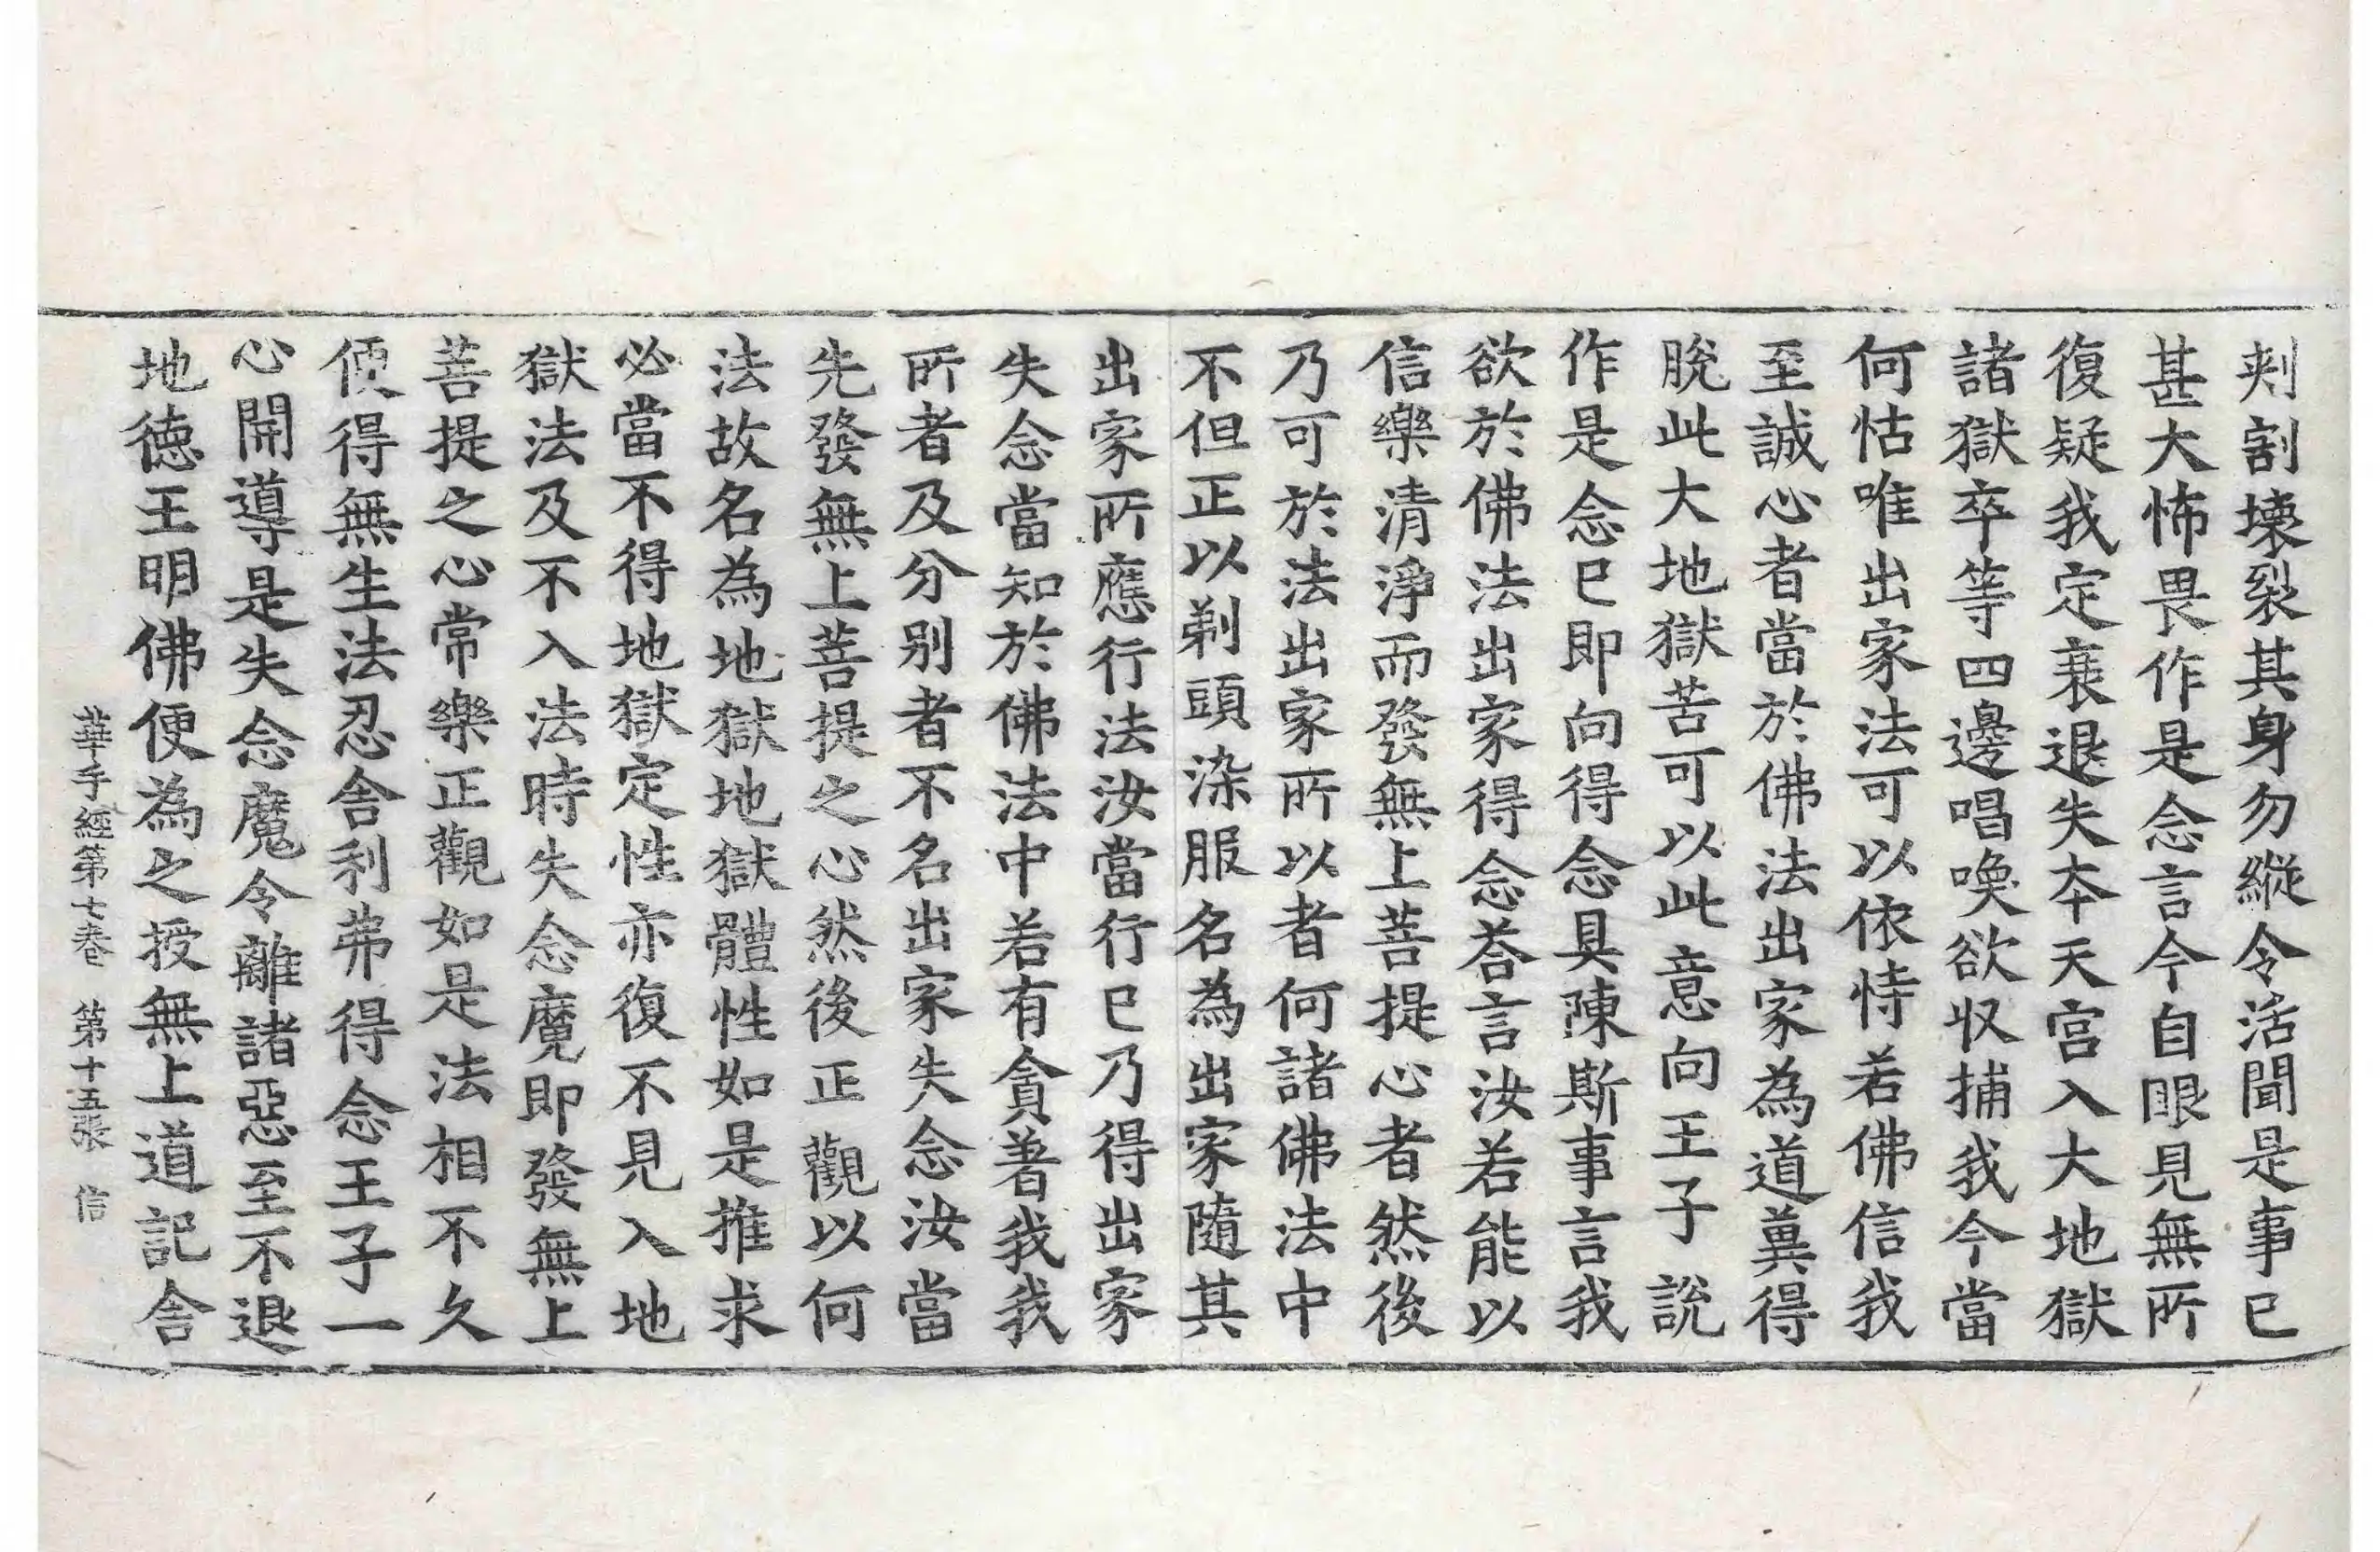 刾割壊裂其身勿縱令活聞是事已
甚大怖畏作是念言今自眼見無所
復疑我定衰退失夲天宮入大地獄
諸獄卒等四邊唱喚欲収捕我今當
何怙唯出家法可以依恃若佛信我
至誠心者當於佛法出家為道兾得
脫此大地獄苦可以此意向王子說
作是念已即向得念具陳斯事言我
欲於佛法出家得念荅言汝若能以
信樂清淨而發無上菩提心者然後
乃可於法出家所以者何諸佛法中
不但正以剃頭染服名為出家隨其
出家所應行法汝當行已乃得出家
失念當知於佛法中若有貪著我我
所者及分别者不名出家失念汝當
先發無上菩提之心然後正觀以何
法故名為地獄地獄體性如是推求
必當不得地獄定性亦復不見入地
獄法及不入法時失念魔即發無上
菩提之心常樂正觀如是法相不久
便得無生法忍舎利弗得念王子一
心開導是失念魔令離諸惡至不退
地德王明佛便為之授無上道記舎
華手經第七卷 第十五張 信